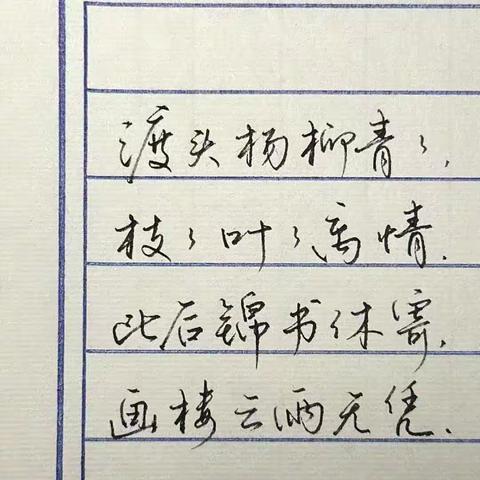 渡头杨柳青々,
枝々叶々离情.
此后锦书休寄,
画楼云雨无凭.